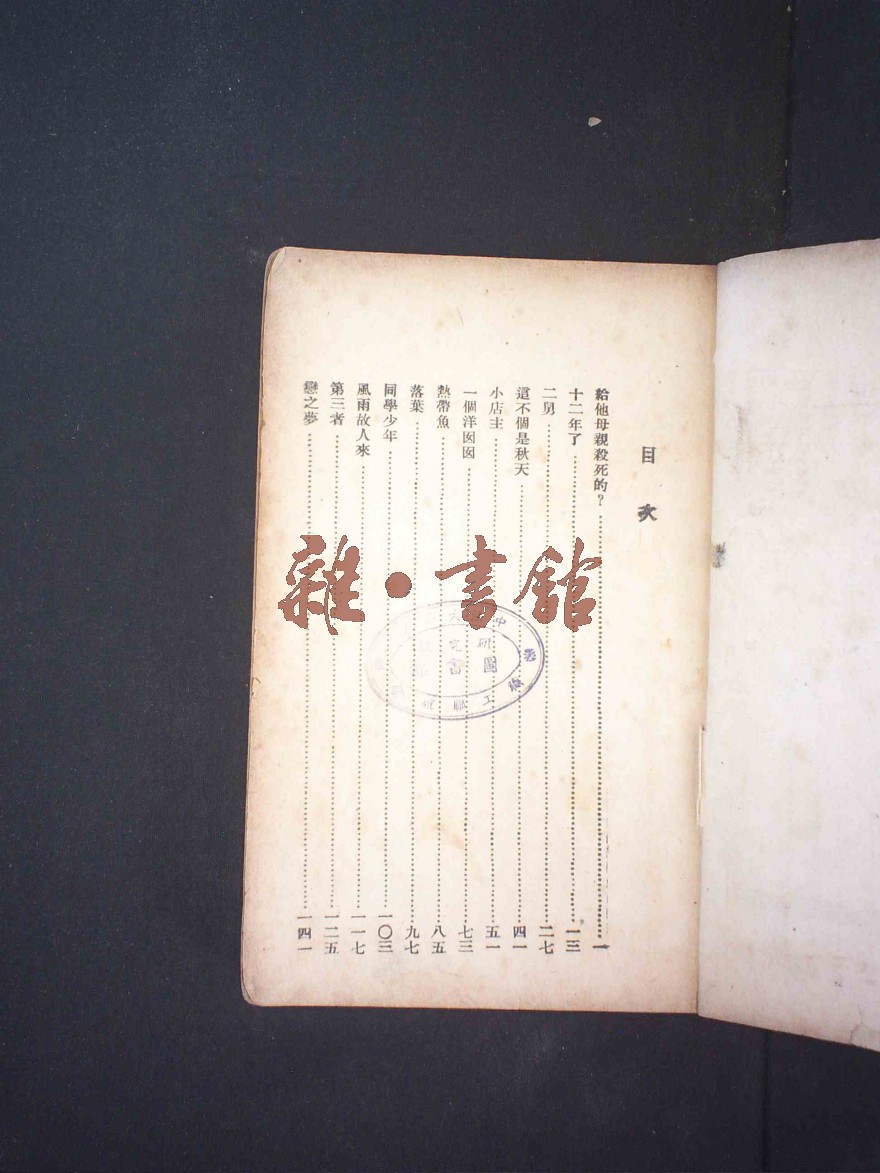 目次
給他母親殺死的？……一
十二年了……一三
二舅……二七
這不個是秋天……四一
小店主……五一
一個洋囡囡……七三
熱帶魚……八五
落葉……九七
同學少年……一〇三
風雨故人來……一一七
第三者……一二五
戀之夢……一四一
雜·書館
圖
書
研
究
中
工